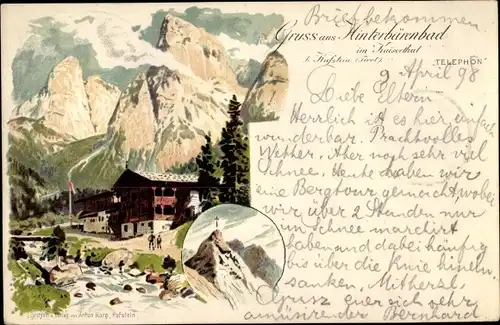 Brief bekommen
Gruss aus Hinterbärenbad
im Kaiserthal
b. Kufstein (Tirol)
TELEPHON
9 April 98
Liebe Eltern
Herrlich ist es hier einfach
wunderbar. Prachtvolles
Wetter. Aber noch sehr viel
Schnee. Heute haben wir
eine Bergtour gemacht, wobei
wir über 2 Stunden nur
im Schnee marchirt
haben und dabei häufig
bis über die Knie hinein
sanken. Mitherzl.
Gruss euer sich sehr
amüsirender Bernhard
Verlag von Anton Karg, Kufstein